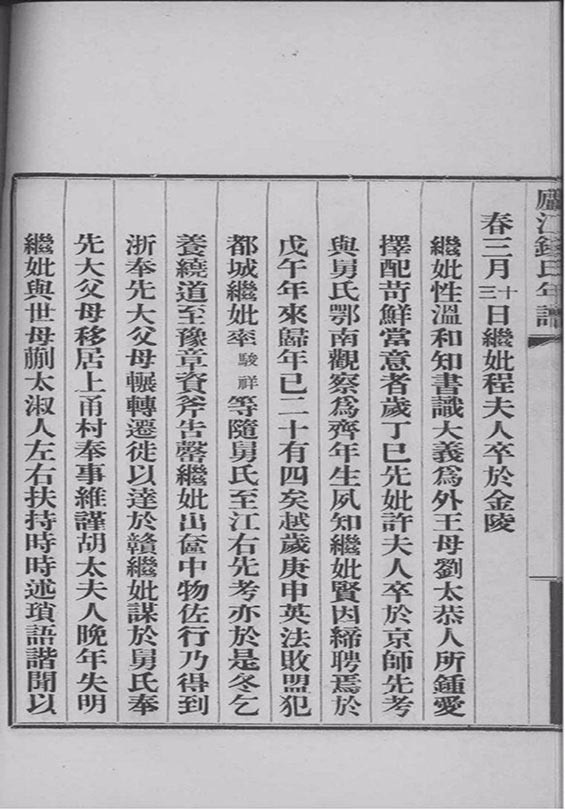 廬江錢氏年譜
春三月三十日繼妣程夫人卒於金陵
繼妣性溫和知書識大義爲外王母劉太恭人所鍾愛
擇配苛鮮當意者歲丁巳先妣許夫人卒於京師先考
與舅氏鄂南觀察爲齊年生夙知繼妣賢因締聘焉於
戊午年來歸年已二十有四矣越歲庚申英法敗盟犯
都城繼妣率駿祥等隨舅氏至江右先考亦於是冬乞
養繞道至豫章資斧告罄繼妣出奩中物佐行乃得到
浙奉先大父母輾轉遷徙以達於贛繼妣謀於舅氏奉
先大父母移居上甬村奉事維謹胡太夫人晚年失明
繼妣與世母蒯太淑人左右扶持時時述瑣語諧聞以